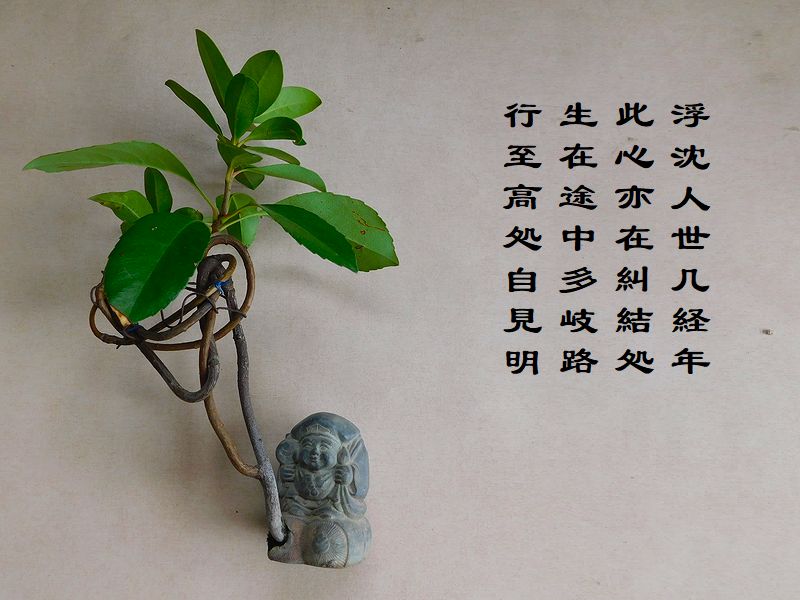 浮沈人世几経年
此心亦在糾結処
生在途中多岐路
行至高処自見明